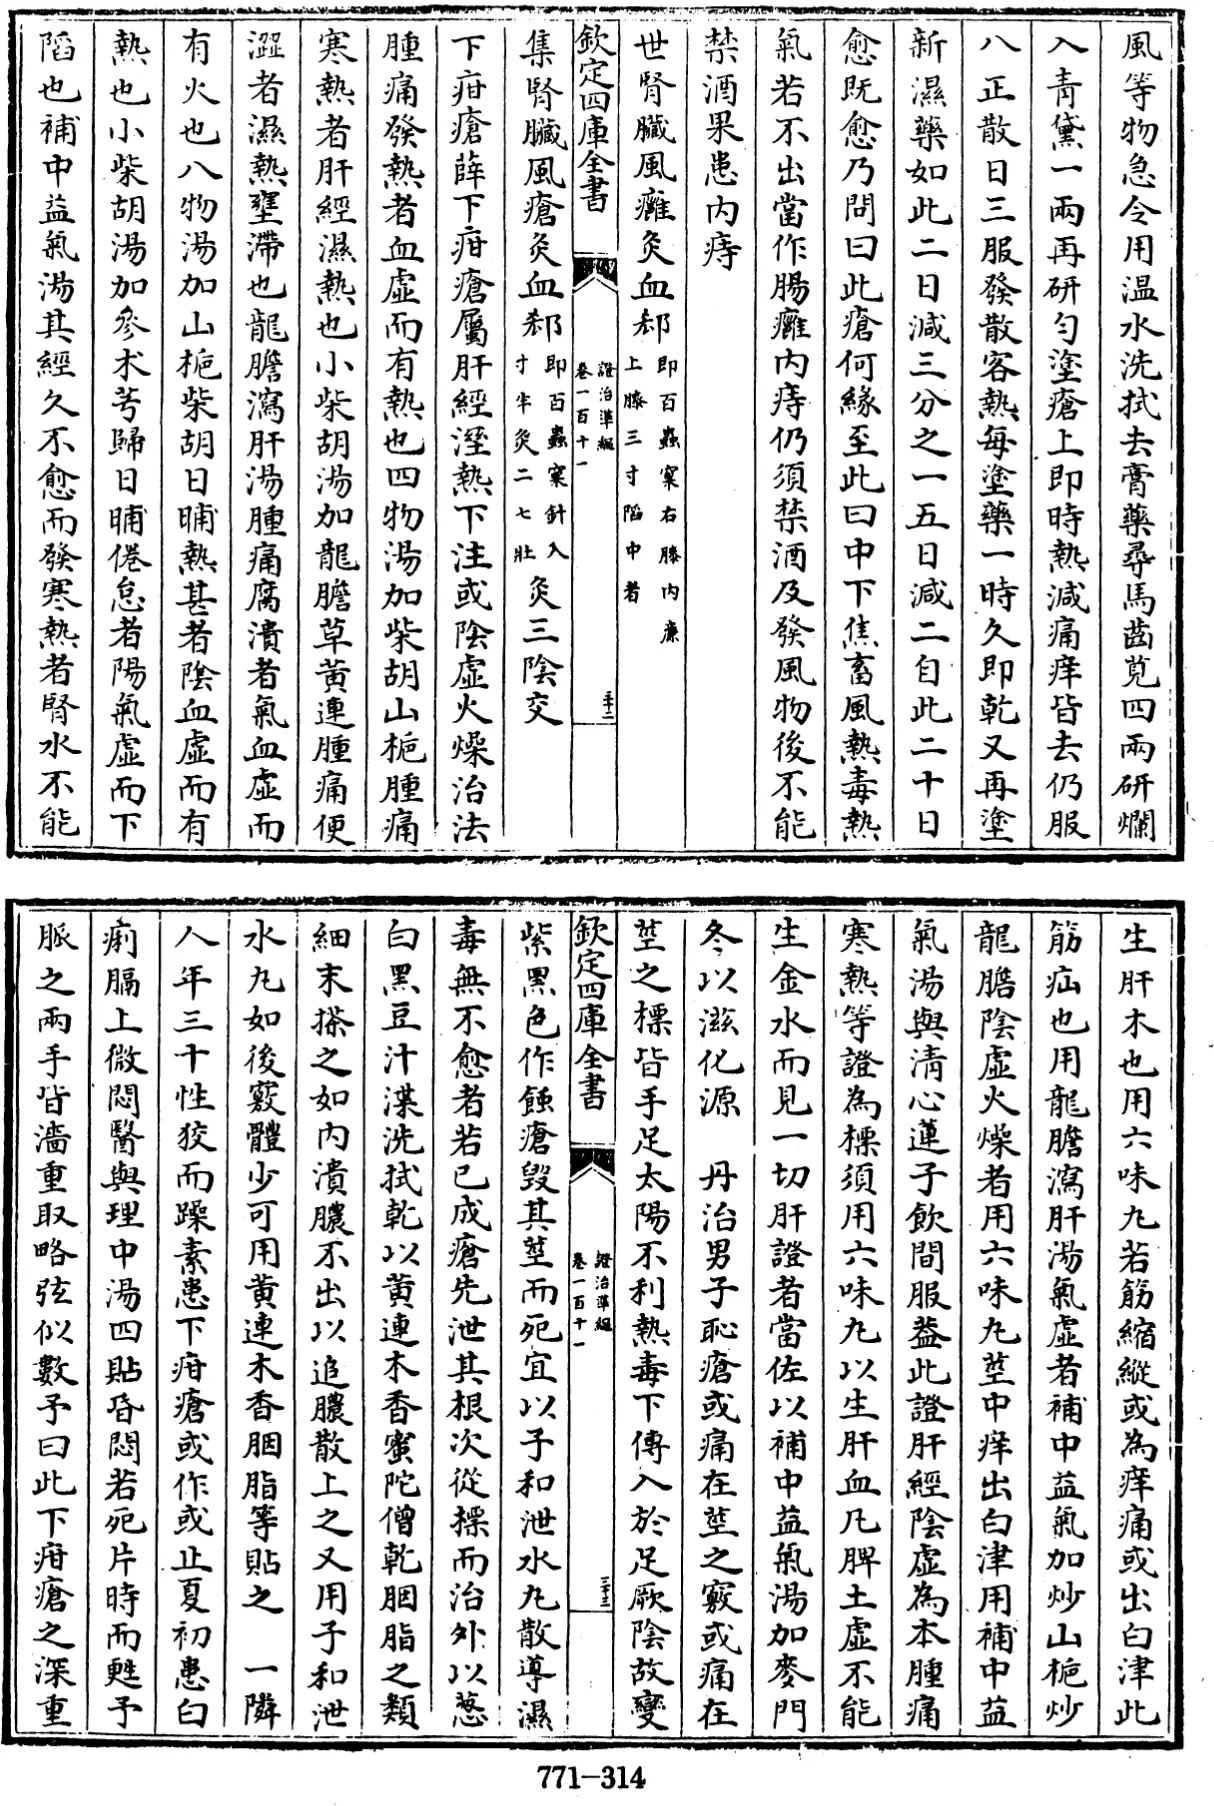 風等物急令用温水洗拭去膏藥尋馬齒莧四兩研爛
入青黛一兩再研匀塗瘡上即時熱減痛痒皆去仍服
八正散日三服發散客熱每塗藥一時久即乾又再塗
新濕藥如此二日減三分之一五日減二自此二十日
愈既愈乃問曰此瘡何緣至此曰中下焦畜風熱毒熱
氣若不出當作腸癰內痔仍須禁酒及發風物後不能
禁酒果患內痔
世腎臟風癰灸血郄即百蟲窠右膝內亷上膝三寸陷中者
欽定四庫全書
證治準繩
卷一百十一
三十二
集腎臟風瘡灸血郄即百蟲窠針入寸半灸二七壯灸三陰交
下疳瘡薛下疳瘡屬肝經溼熱下注或陰虛火燥治法
腫痛發熱者血虛而有熱也四物湯加柴胡山梔腫痛
寒熱者肝經濕熱也小柴胡湯加龍膽草黄連腫痛便
澀者濕熱壅滯也龍膽瀉肝湯腫痛腐潰者氣血虛而
有火也八物湯加山梔柴胡日晡熱甚者陰血虛而有
熱也小柴胡湯加參朮芎歸日晡倦怠者陽氣虛而下
陷也補中益氣湯其經久不愈而發寒熱者腎水不能
生肝木也用六味丸若筋縮縱或為痒痛或出白津此
筋疝也用龍膽瀉肝湯氣虛者補中益氣加炒山梔炒
龍膽陰虛火燥者用六味丸莖中痒出白津用補中益
氣湯與清心蓮子飲間服葢此證肝經陰虛為本腫痛
寒熱等證為標須用六味丸以生肝血凡脾土虛不能
生金水而見一切肝證者當佐以補中益氣湯加麥門
冬以滋化源　丹治男子恥瘡或痛在莖之竅或痛在
莖之標皆手足太陽不利熱毒下傳入於足厥陰故變
欽定四庫全書
證治準繩
卷一百十一
三十三
紫黑色作蝕瘡毀其莖而死宜以子和泄水丸散導濕
毒無不愈者若已成瘡先泄其根次從標而治外以葱
白黑豆汁渫洗拭乾以黄連木香蜜陀僧乾胭脂之類
細末搽之如內潰膿不出以追膿散上之又用子和泄
水丸如後竅體少可用黄連木香胭脂等貼之　一隣
人年三十性狡而躁素患下疳瘡或作或止夏初患白
痢膈上微悶醫與理中湯四貼昏悶若死片時而甦予
脈之兩手皆濇重取略弦似數予曰此下疳瘡之深重
771-314